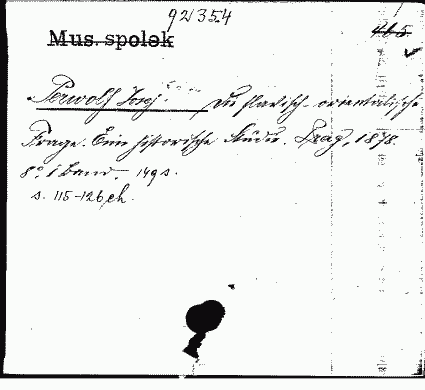 92354
Mus. spolek
465
Perwolf Josef: Die slavisch-orientalische
Frage. Eine historische Studie. Prag, 1878.
8°. 1 Band. 149 s.
s. 115-126 ch.